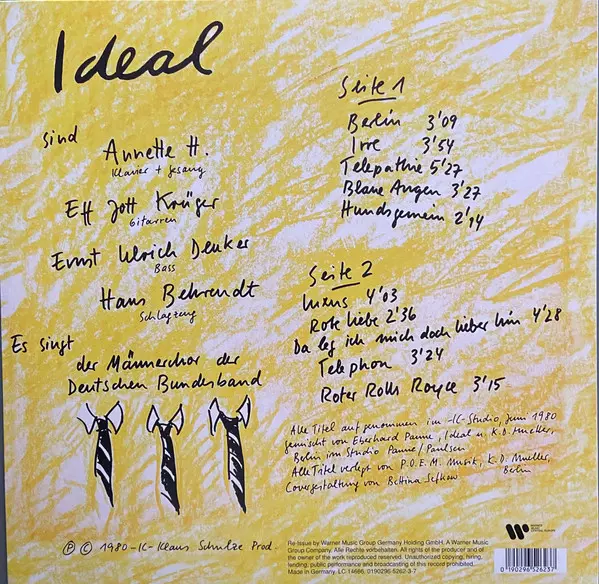 Ideal
sind
Annette H.
Klavier + Gesang
Eff Jott Krüger
Gitarren
Ernst Ulrich Deuker
Bass
Hans Behrendt
Schlagzeug
Es singt
der Männerchor der
Deutschen Bundesband
Seite 1
Berlin 3'09
Irre 3'54
Telepathie 5'27
Blaue Augen 3'27
Hundsgemein 2'14
Seite 2
Luxus 4'03
Rote Liebe 2'36
Da leg ich mich doch lieber hin 4'28
Telephon 3'24
Roter Rolls Royce 3'15
Alle Titel aufgenommen im -IC-Studio, Juni 1980
gemischt von Eberhard Panne, Ideal u. K.D. Mueller,
Berlin im Studio Panne/Paulsen
Alle Titel verlegt von P.O.E.M. Musik, K.D. Mueller,
Berlin
Covergestaltung von Bettina Sefkow
Ⓟ © 1980 -IC- Klaus Schulze Prod.
Re-Issue by Warner Music Group Germany Holding GmbH. A Warner Music
Group Company. Alle Rechte vorbehalten. All rights of the producer and of
the owner of the work reproduced reserved. Unauthorized copying, hiring,
lending, public performance and broadcasting of this record prohibited.
Made in Germany. LC 14666, 0190296-52623-7
0190296526237